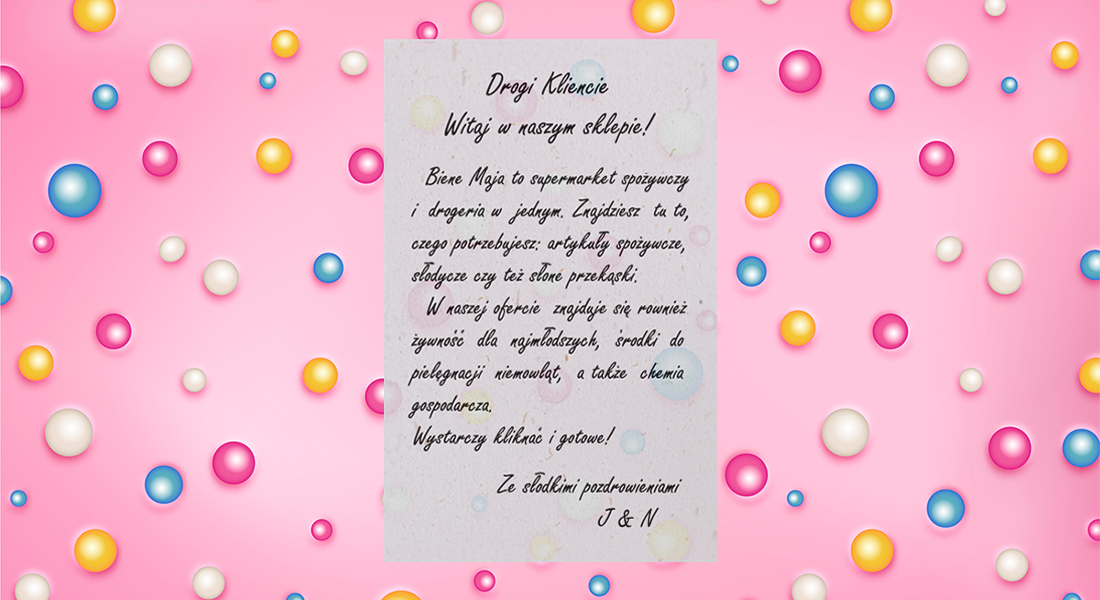 Drogi Kliencie
Witaj w naszym sklepie!
Biene Maja to supermarket spożywczy
i drogeria w jednym. Znajdziesz tu to,
czego potrzebujesz: artykuły spożywcze,
słodycze czy też słone przekąski.
W naszej ofercie znajduje się rownież
żywność dla najmłodszych, środki do
pielęgnacji niemowląt, a także chemia
gospodarcza.
Wystarczy kliknać i gotowe!
Ze słodkimi pozdrowieniami
J & N